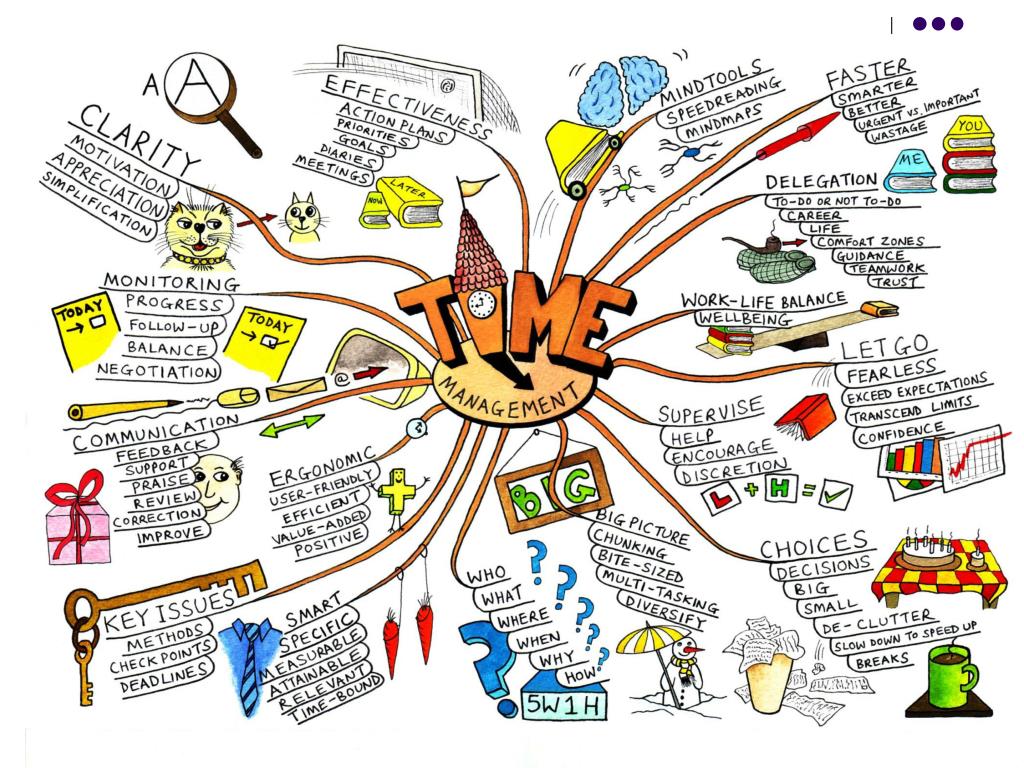 TIME
MANAGEMENT
A A
CLARITY
MOTIVATION
APPRECIATION
SIMPLIFICATION
EFFECTIVENESS
ACTION PLANS
PRIORITIES
GOALS
DIARIES
MEETINGS
@
NOW
LATER
MINDTOOLS
SPEEDREADING
MINDMAPS
FASTER
SMARTER
BETTER
URGENT VS. IMPORTANT
WASTAGE
YOU
ME
DELEGATION
TO-DO OR NOT TO-DO
CAREER
LIFE
COMFORT ZONES
GUIDANCE
TEAMWORK
TRUST
WORK-LIFE BALANCE
WELLBEING
LET GO
FEARLESS
EXCEED EXPECTATIONS
TRANSCEND LIMITS
CONFIDENCE
SUPERVISE
HELP
ENCOURAGE
DISCRETION
L + H = ✓
CHOICES
DECISIONS
BIG
SMALL
DE-CLUTTER
SLOW DOWN TO SPEED UP
BREAKS
BIG
BIG PICTURE
CHUNKING
BITE-SIZED
MULTI-TASKING
DIVERSIFY
WHO
WHAT
WHERE
WHEN
WHY
HOW
? ? ? ? ? ? ?
5W1H
SMART
SPECIFIC
MEASURABLE
ATTAINABLE
RELEVANT
TIME-BOUND
KEY ISSUES
METHODS
CHECK POINTS
DEADLINES
ERGONOMIC
USER-FRIENDLY
EFFICIENT
VALUE-ADDED
POSITIVE
COMMUNICATION
FEEDBACK
SUPPORT
PRAISE
REVIEW
CORRECTION
IMPROVE
@
MONITORING
PROGRESS
FOLLOW-UP
BALANCE
NEGOTIATION
TODAY
TODAY